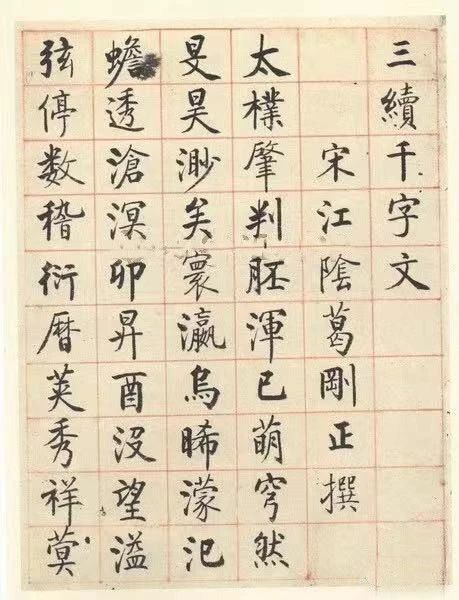 三續千字文
宋江陰葛剛正撰
太樸肇判胚渾已萌穹然
旻昊渺矣寰瀛烏晞濛汜
蟾透滄溟卯昇酉沒望溢
弦停数稽衍暦莢秀祥蓂